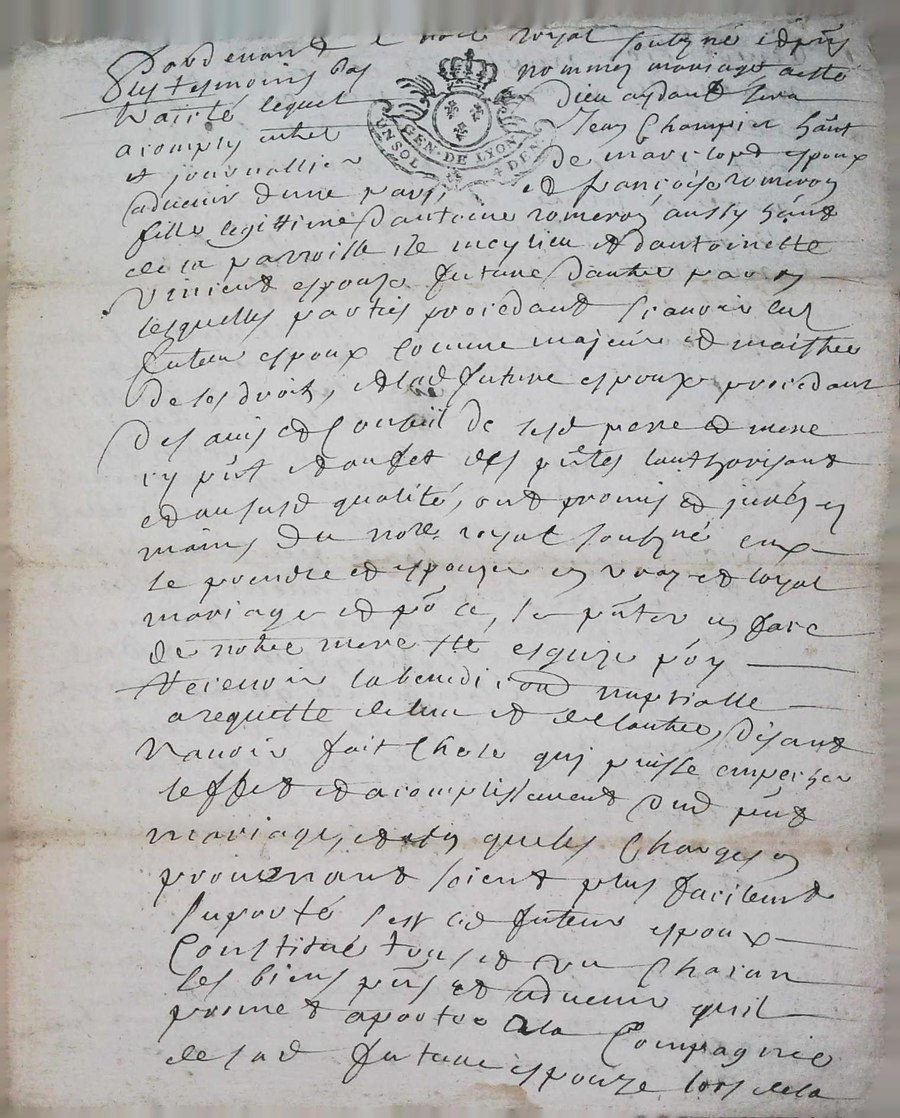 Pardevant le no.re royal soubzné et pnts
les tesmoins bas nommés mariage a esté
traicté lequel Dieu aydant sera
acomply entre Jean Champier hant
UN SOL GEN. DE LYON 4 DEN.
et journallier de espoux
advenir dune part, et françoise romeron
fille legittime d'antoine romeron aussy hant
de la parroisse de meylieu et d'antoinette
vincent espouze future d'autre part
lesquelles parties procedant sçavoir led
futeur espoux comme majeur et maistre
de ses droits, et lad future espouze procedant
des avis et conseil de sesd pere et mere
icy pnt et au fet des pntes lauthorisant
et aususd qualité, ont promis et jurés es
mains du no.re royal soubzné eux
se prendre et espouzer en vray et loyal
mariage et po ce, se pnter en face
de notre mere ste esglize po y
recevoir la benediction nuptialle
a requette de lun et de lautre, disant
n'avoir fait chose qui puisse empecher
leffet et acomplissement dud pnt
mariage, et afin que les charges en
provenant soient plus facilemt
suporté sest led futeur espoux
constitué tous et un chacun
ses biens pnts et advenir quil
promet aporter a la compagnie
de sad future espouze lors de la